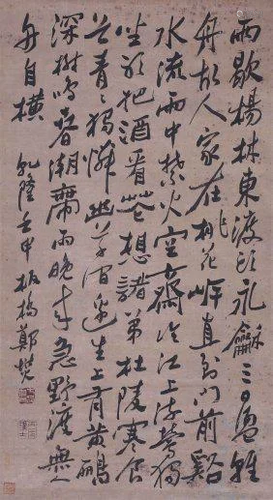 雨歇楊林東渡頭永龢三日盪輕
舟故人家在桃花岸直到門前谿
水流雨中禁火空齋冷江上流鶯獨
坐聽把酒看花想諸弟杜陵寒食
草青〻獨憐幽草澗邊生上有黃鸝
深樹鳴春潮帶雨晚來急野渡無人
舟自橫 乾隆壬申板橋鄭燮